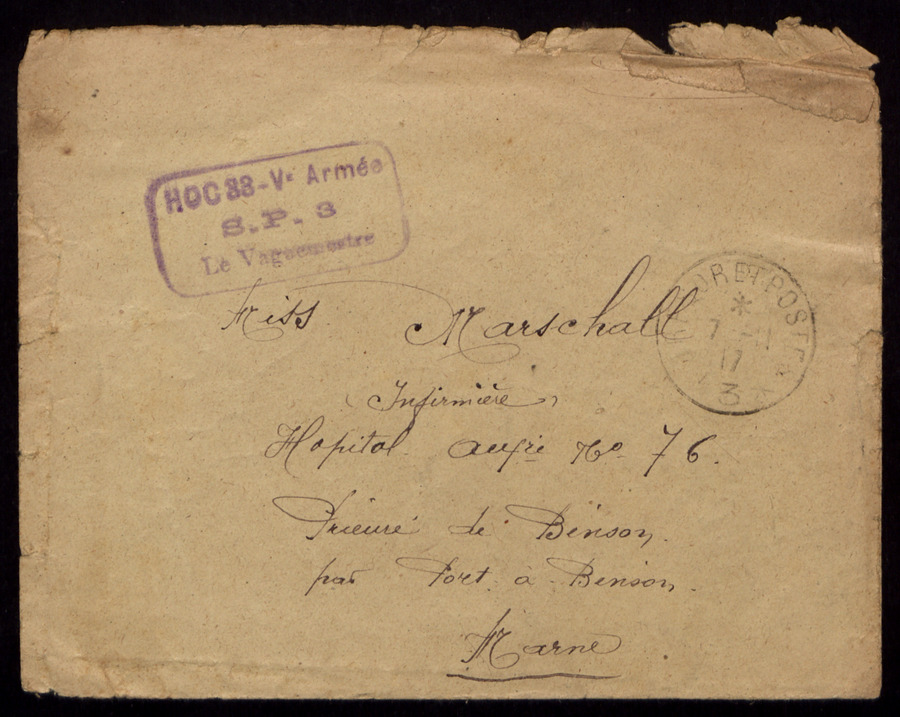 HOC 33 - Ve Armée
S.P. 3
Le Vaguemestre
Miss Marschall
Infirmière
Hopital auxre No 76.
Prieuré de Binson
par Port à Binson.
Marne
TRESOR ET POSTES
*
7 - 1
17
3